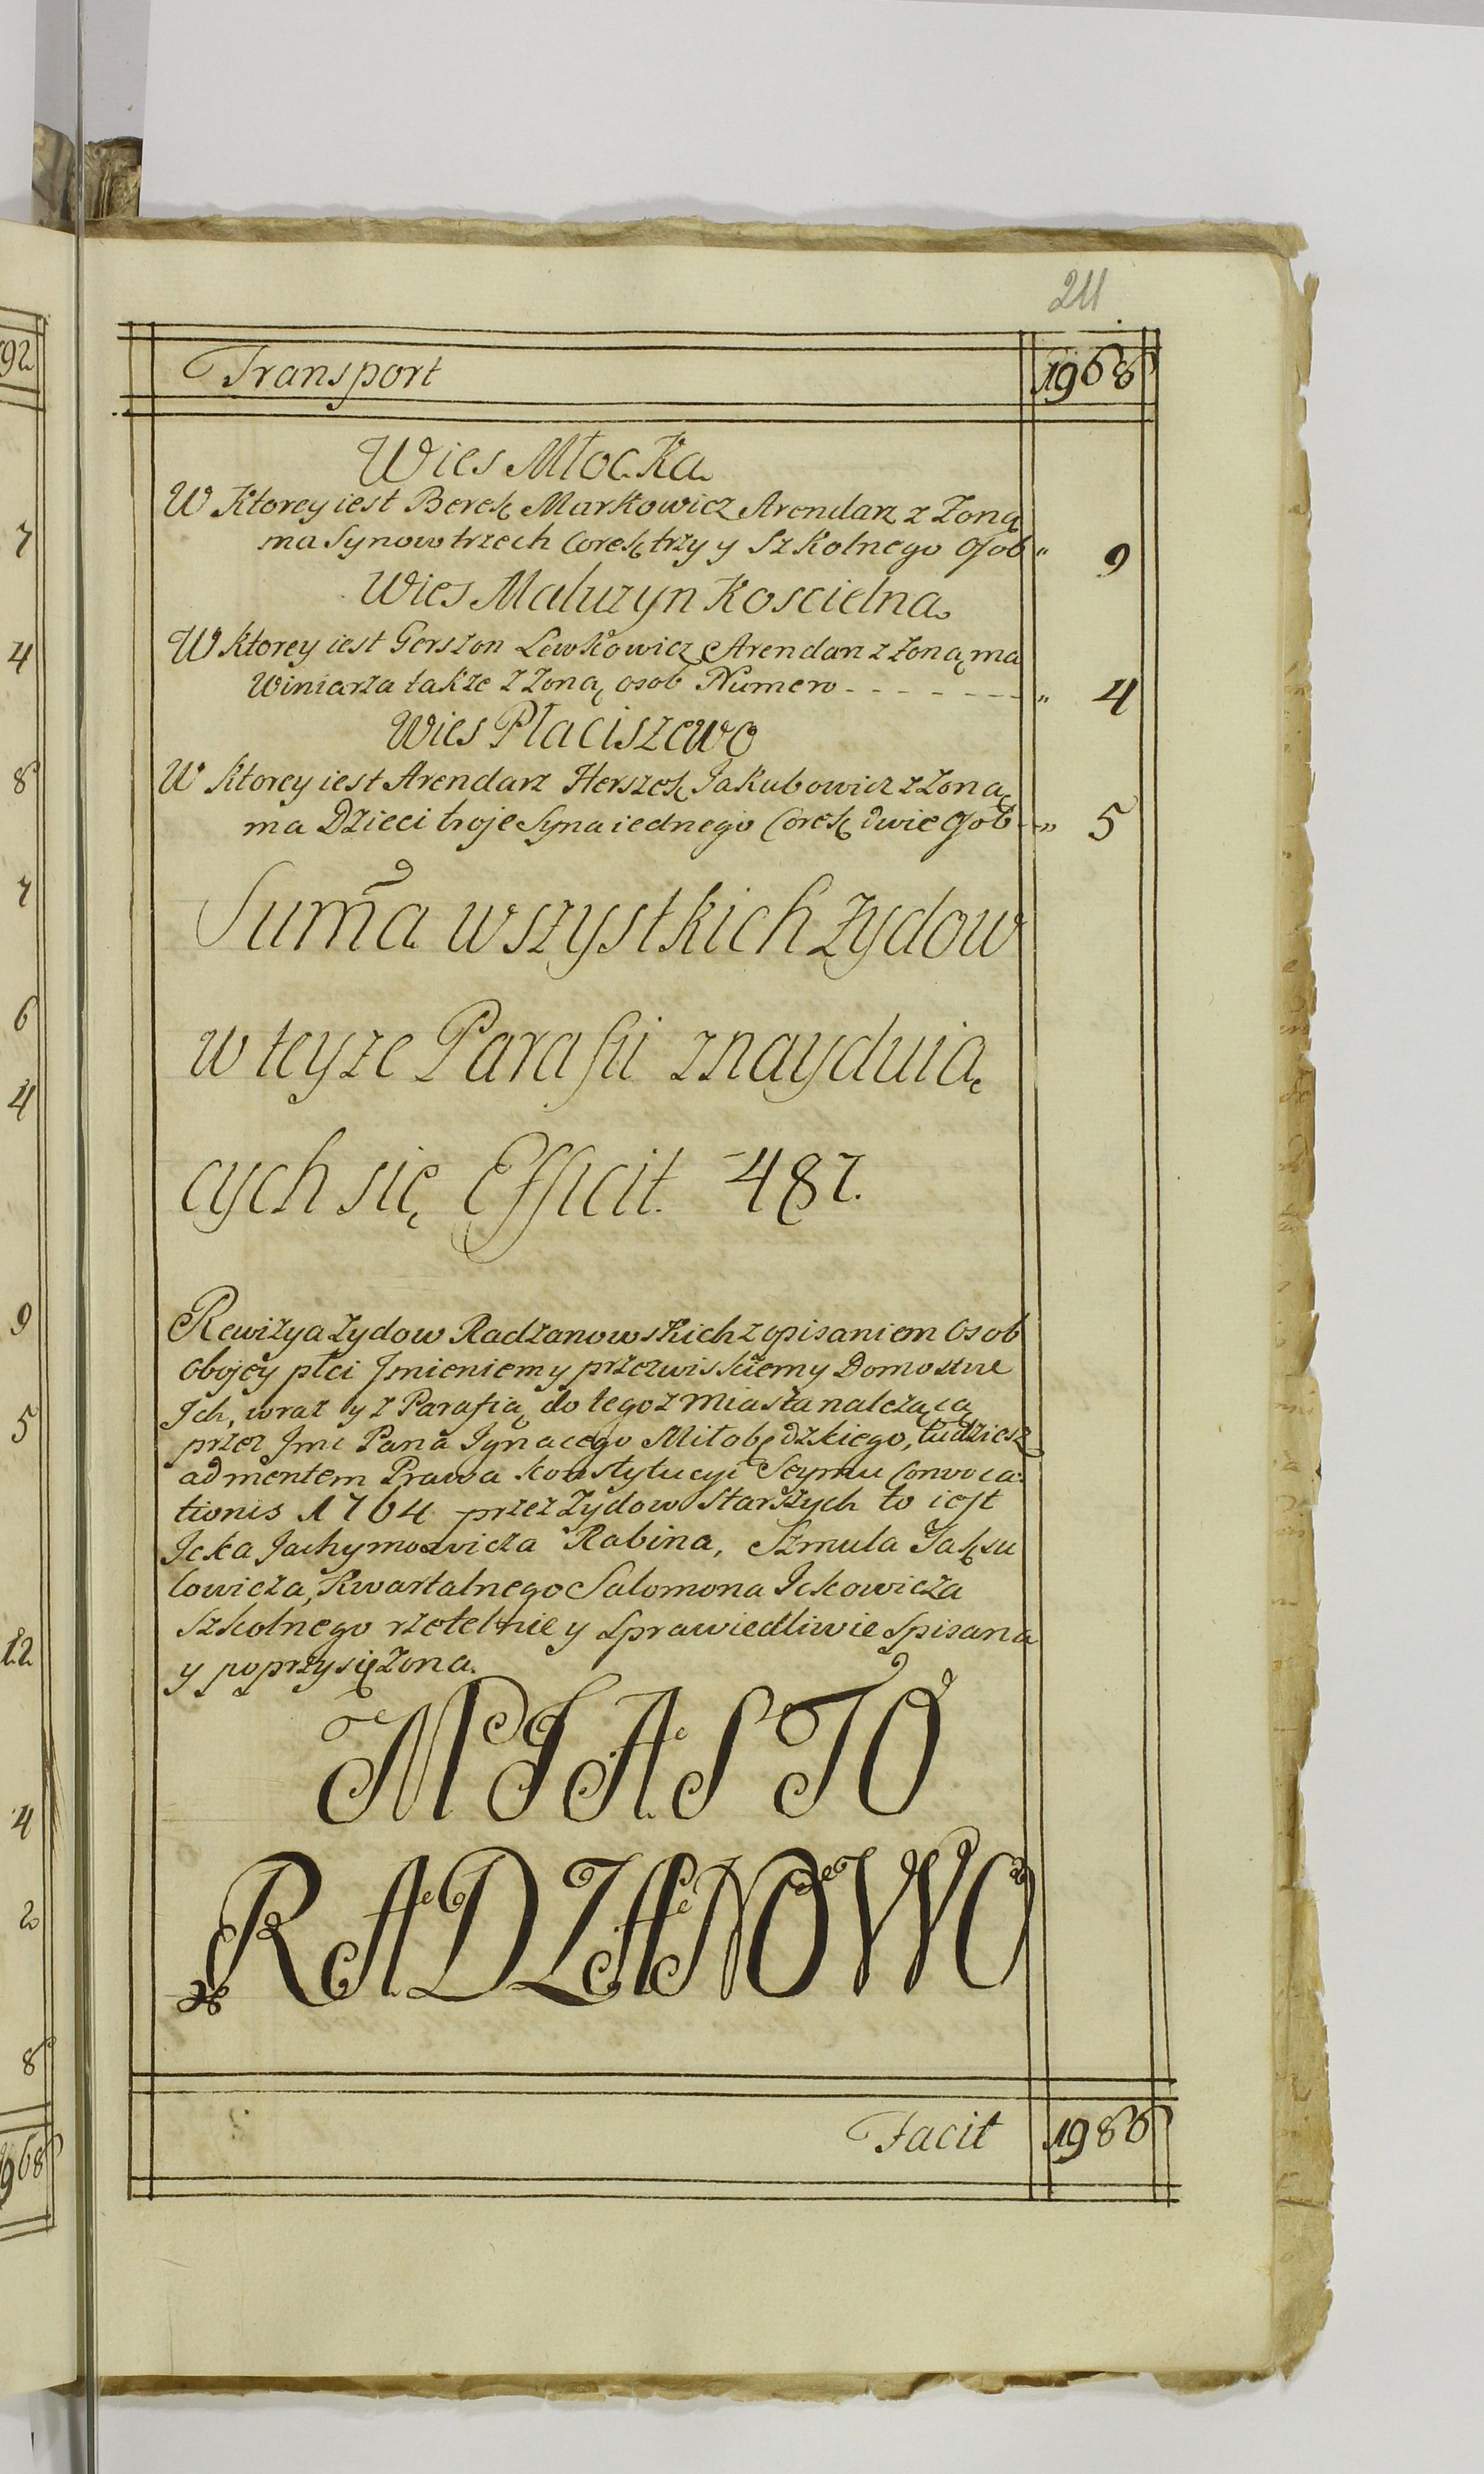 92
7
4
8
7
6
4
9
5
12
4
2
8
1968
211
Transport 1968
Wies Młocka
W Ktorey iest Berek Markowicz Arendarz z Zoną
ma Synow trzech Corek trzy y Szkolnego Osob " 9
Wies Maluzyn Koscielna
W ktorey iest Gerszon Lewkowicz Arendarz z Zoną ma
Winiarza takze z Zoną osob Numero - - - - - - - " 4
Wies Płaciszewo
W ktorey iest Arendarz Herszek Jakubowicz z Zoną
ma Dzieci troje Syna iednego Corek dwie Osob - " 5
Suma wszystkich Zydow
w teyze Parafii znayduią
cych się Efficit. 487.
Rewizya Zydow Radzanowskich z opisaniem Osob
obojey płci Jmieniem y przezwiskiem y Domostwe
Jch, wraz y z Parafią do tegoz miasta nalezącą
przez Jmc Pana Jgnacego Miłobędzkiego, tudziesz
ad mentem Prawa Konstytucyi Seymu Convoca
tionis 1764 przez Zydow Starszych to iest
Jcka Jachymowicza Rabina, Szmula Jaksu
lowicza, Kwartalnego Salomona Jckowicza
Szkolnego rzetelnie y sprawiedliwie spisana
y poprzysięzona.
MIASTO
RADZANOWO
Facit 1986